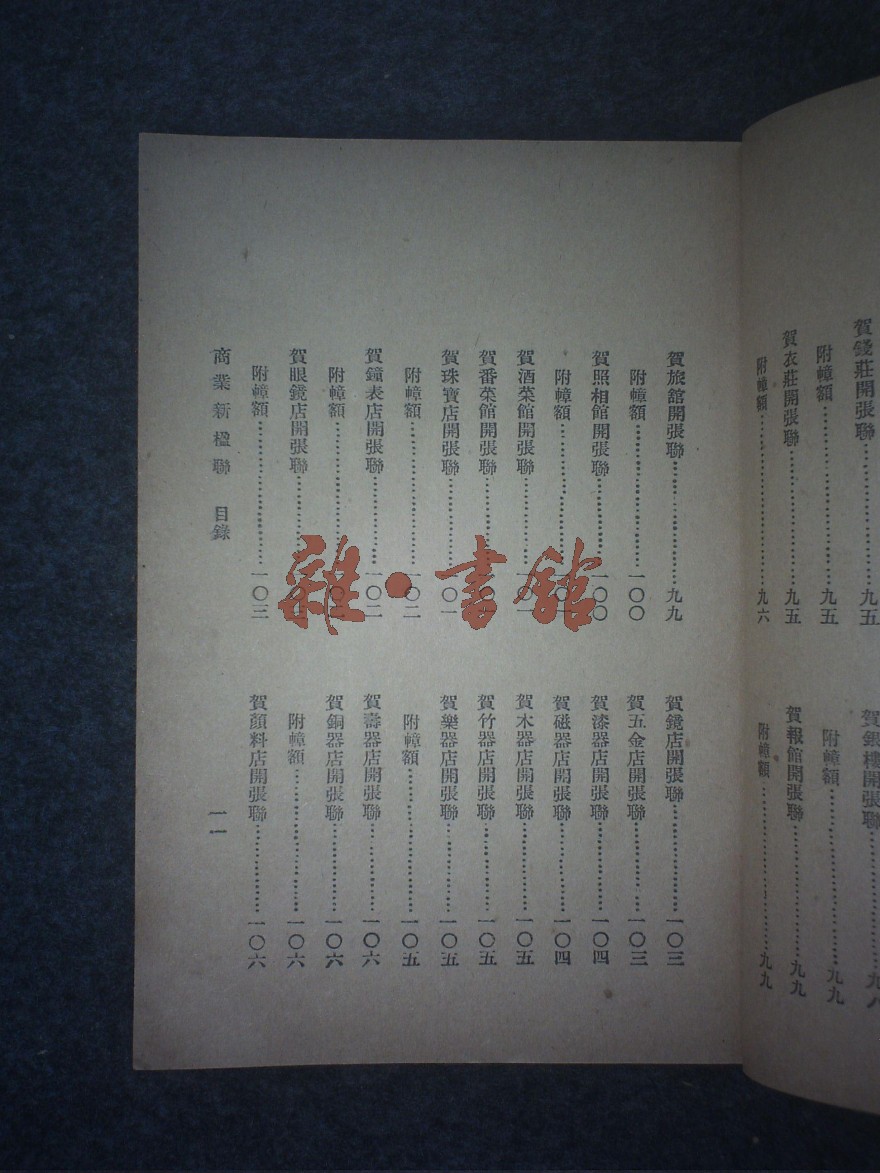 賀錢莊開張聯……九五
附幛額……九五
賀衣莊開張聯……九五
附幛額……九六
賀銀樓開張聯
附幛額……九九
賀報館開張聯……九九
附幛額……九九
賀旅館開張聯……九九
附幛額……一〇〇
賀照相館開張聯……一〇〇
附幛額……
賀酒菜館開張聯……一〇一
賀番菜館開張聯……
賀珠寶店開張聯……一〇一
附幛額……一〇二
賀鐘表店開張聯……一〇二
附幛額……
賀眼鏡店開張聯……
附幛額……一〇三
賀鐵店開張聯……一〇三
賀五金店開張聯……一〇三
賀漆器店開張聯……一〇四
賀磁器店開張聯……一〇四
賀木器店開張聯……一〇五
賀竹器店開張聯……一〇五
賀樂器店開張聯……一〇五
附幛額……一〇五
賀壽器店開張聯……一〇六
賀銅器店開張聯……一〇六
附幛額……一〇六
賀顏料店開張聯……一〇六
商業新楹聯 目錄
一一
雜·書館